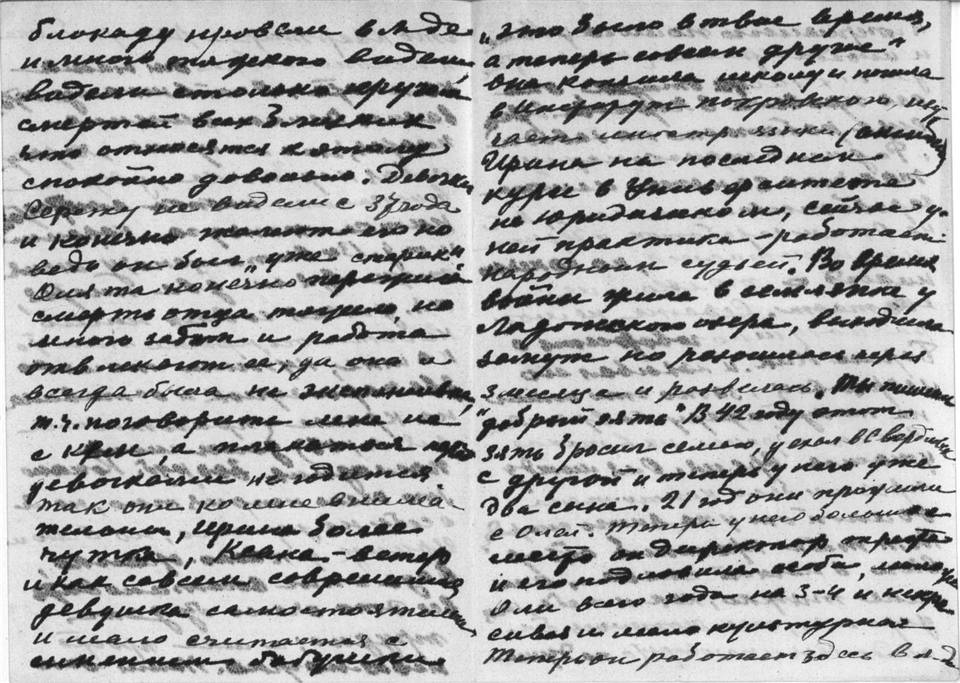 блокаду провели в Л-де
и много тяжкого видели
видели столько кругом
смертей всех близких
что относятся к этому
спокойно довольно. Девочки
Сережу не видели с 37 года
и конечно жалеют его но
ведь он был "уже старик"
Оля та конечно
смерть отца тяжело, но
много забот и работа
отвлекают ее, да она и
всегда была не экспансивна,
т.ч. поговорить мне не
с кем, а плакаться
девочками не годится
Так они ко мне внима
тельны, Ирина более
чутка, Ксана - ветер
и как совсем современная
девушка самостоятельна
и мало считается с
мнением бабушки
"это было в твое время,
а теперь совсем другое"
она кончила школу и пошла
в институт
иностр языки
Ирина на последнем
курсе в Университете
на юридическом, сейчас у
ней практика - работает
народным судьей. Во время
войны жила в землянке у
Ладожского озера, выходила
замуж но разошлась через
3 месяца и развелась. Ты пишешь
"добрый зять" В 42 году этот
зять бросил семью, уехал в Свердловск
с другой и теперь у него уже
два сына. 21 год они прожили
с Олей. Теперь у него большое
место он директор треста
и его подловила особа, моложе
Оли всего года на 3-4 и некра
сивая и мало культурная
Теперь он работает здесь в Л-де